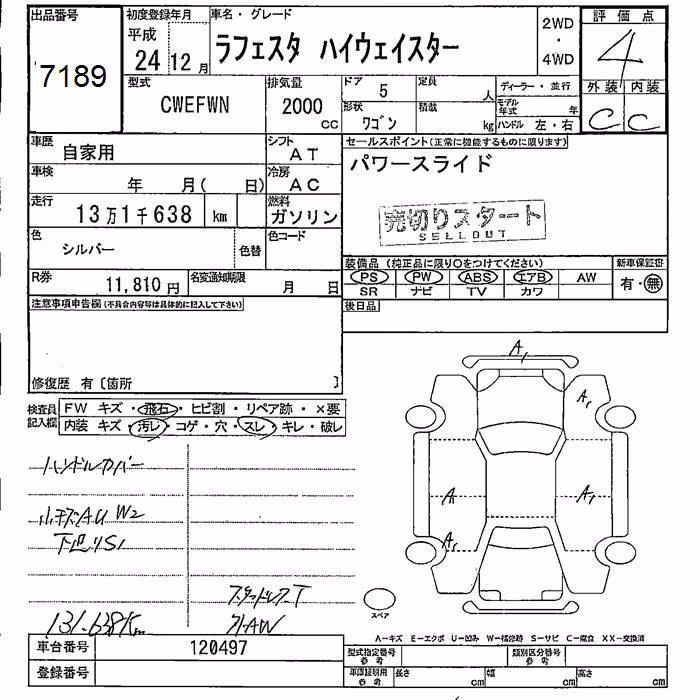 出品番号
7189
初度登録年月
平成
24 12 月
車名・グレード
ラフェスタ ハイウェイスター
2WD
・
4WD
評価点
4
外装 内装
C C
型式
CWEFWN
排気量
2000
CC
ドア 5
定員 人
形状
ワゴン
積載 kg
ディーラー・並行
モデル年式 年
ハンドル 左・右
車歴
自家用
シフト
AT
車検
年 月( 日)
冷房
AC
走行
13万1千638 km
燃料
ガソリン
色
シルバー
色替
色コード
R券
11,810 円
名変通知期限
月 日
セールスポイント(正常に機能するものに限ります)
パワースライド
売切りスタート
SELLOUT
装備品(純正品に限り○をつけてください)
新車保証書
PS PW ABS エアB AW
SR ナビ TV カワ
有・無
後日品
注意事項申告欄(不具合内容等は具体的に記入して下さい)
修復歴 有〔箇所 〕
検査員
記入欄
FW キズ・飛石・ヒビ割・リペア跡・×要
内装 キズ・汚レ・コゲ・穴・スレ・キレ・破レ
ハンドルカバー
小キズAU W2
下廻りS1
スタッドレスT
131.638Km
社外AW
A1
A1
A1
A1
A1
スペア
A―キズ E―エクボ U―凹み W―補修跡 S―サビ C―腐食 XX―交換済
車台番号
120497
登録番号
型式指定番号
参考
類別区分番号
参考
車庫証明用
参考
長さ cm
幅 cm
高さ cm